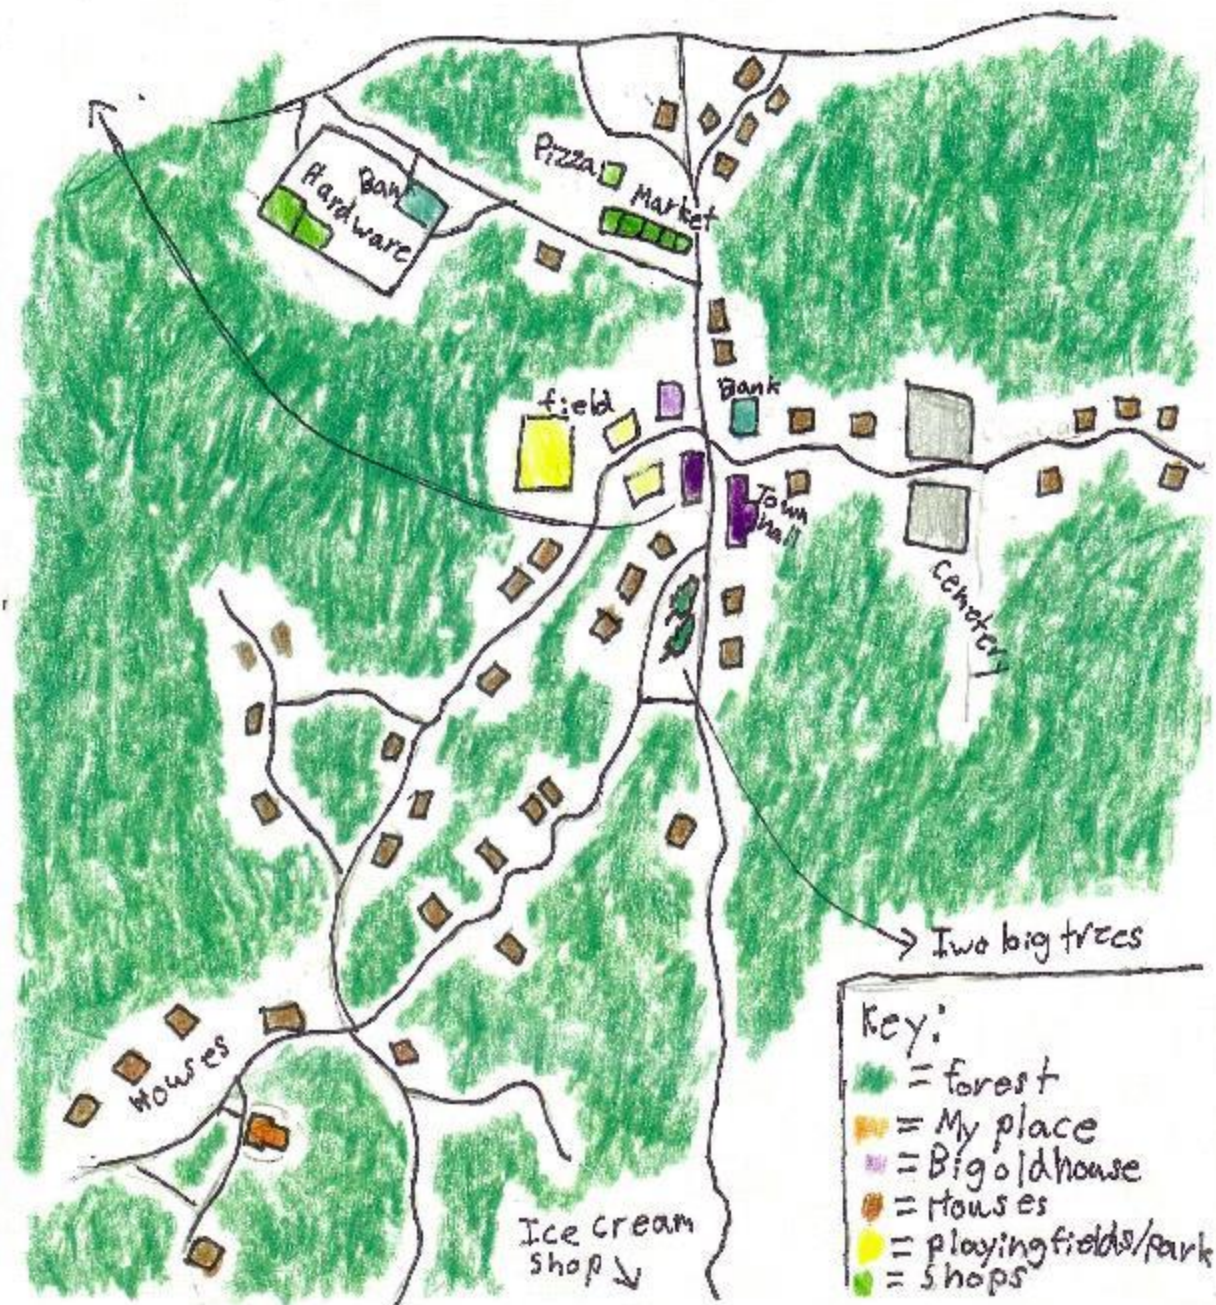 Pizza
Market
Bank
Hardware
field
Bank
Town
hall
cemetery
Two big trees
Houses
Ice cream
shop
Key:
= forest
= My place
= Big old house
= Houses
= playing fields/park
= shops